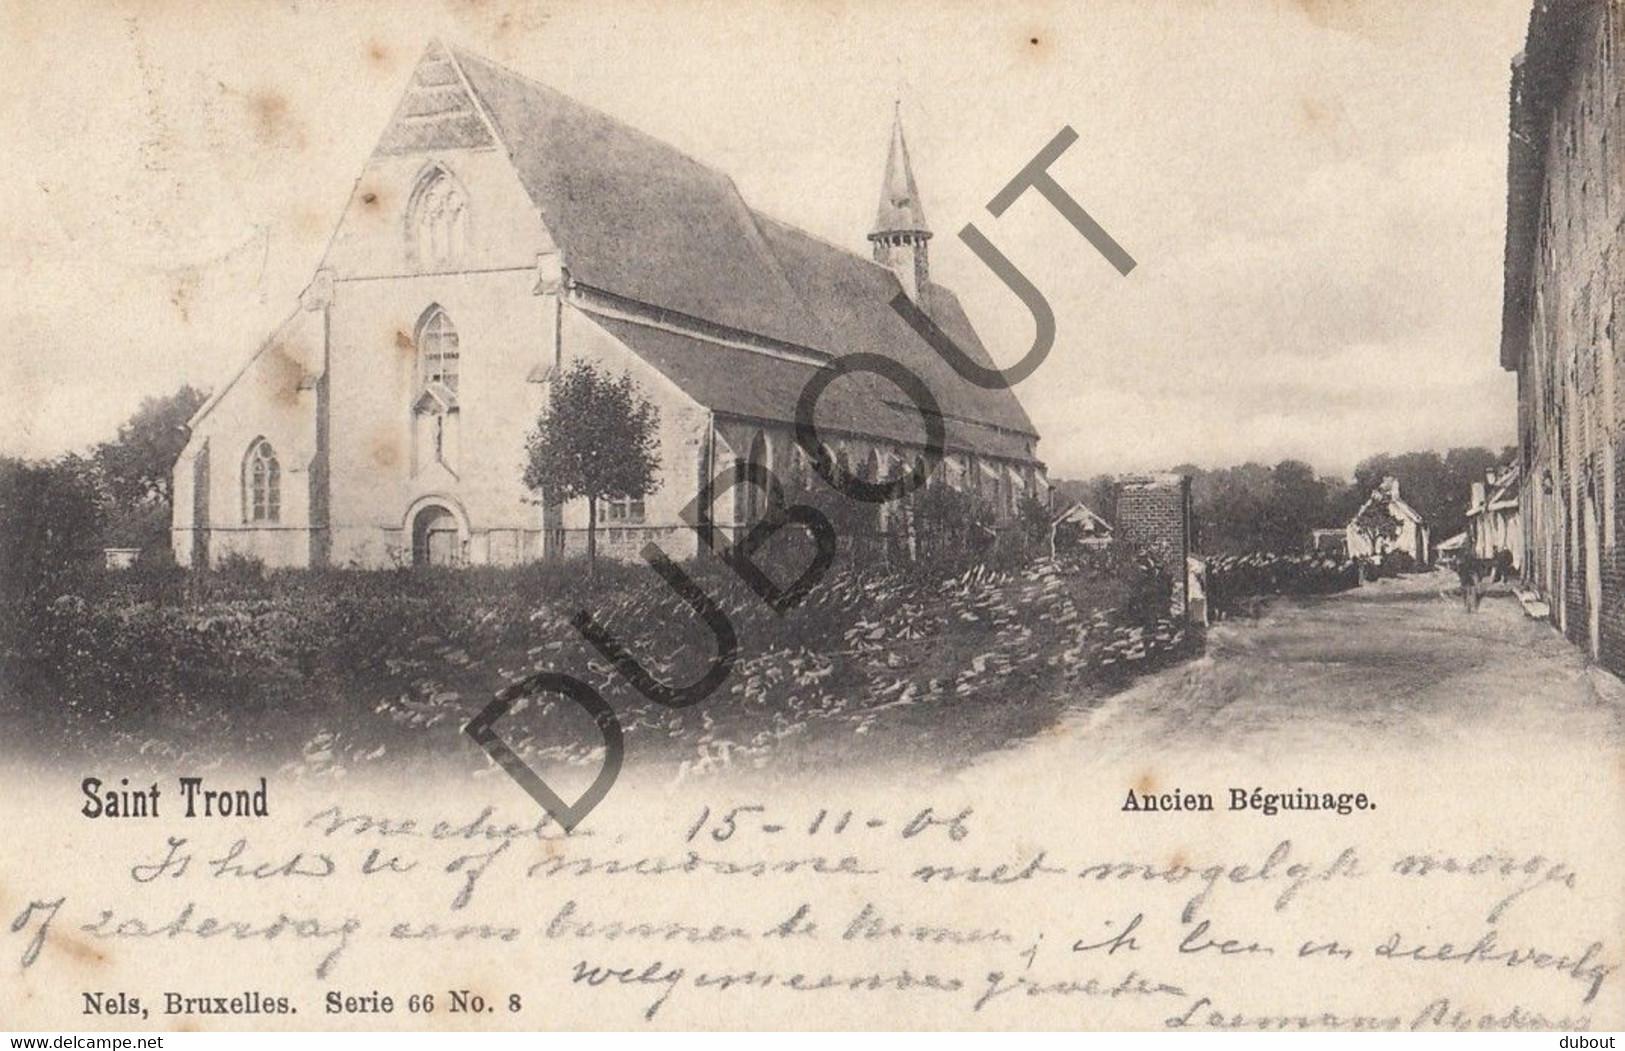 DUBOUT
Saint Trond
Ancien Béguinage.
Mechelen 15-11-06
Is het U of madame niet mogelijk morgen
of zaterdag eens binnen te komen; ik ben in ziekverlof
welgemeende groeten
Nels, Bruxelles. Serie 66 No. 8
www.delcampe.net
dubout